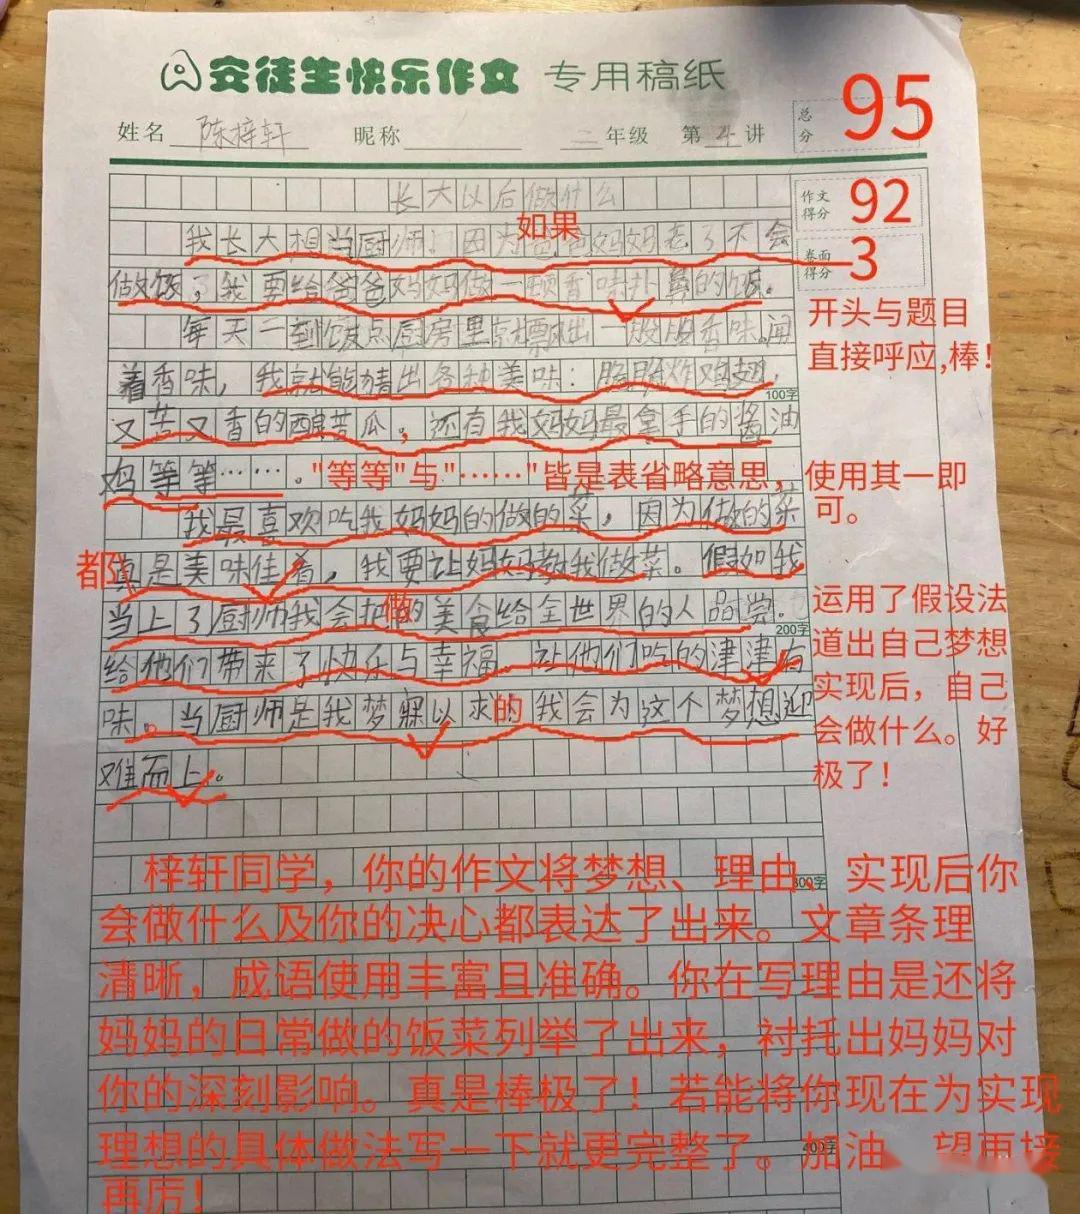 安徒生快乐作文 专用稿纸
姓名 陈梓轩 昵称 二年级 第4讲
总分 95
作文得分 92
卷面得分 3
长大以后做什么
我长大想当厨师,因为爸爸妈妈老了不会
如果
做饭了,我要给爸爸妈妈做一顿香味扑鼻的饭。
每天一到饭点厨房里就飘出一股股香味,闻
着香味,我就能猜出各种美味:炸鸡翅,
又苦又香的酿苦瓜,还有我妈妈最拿手的酱油
妈等等……。
我最喜欢吃我妈妈的做的菜,因为做的菜
都
真是美味佳肴,我要让妈妈教我做菜。假如我
当上了厨师我会把做的美食给全世界的人品尝。
给他们带来了快乐与幸福。让他们吃的津津有
味。当厨师是我梦寐以求的我会为这个梦想迎
难而上。
开头与题目
直接呼应,棒!
"等等"与"……"皆是表省略意思,使用其一即
可。
运用了假设法
道出自己梦想
实现后,自己
会做什么。好
极了!
100字
200字
300字
400字
梓轩同学,你的作文将梦想、理由、实现后你
会做什么及你的决心都表达了出来。文章条理
清晰,成语使用丰富且准确。你在写理由是还将
妈妈的日常做的饭菜列举了出来,衬托出妈妈对
你的深刻影响。真是棒极了!若能将你现在为实现
理想的具体做法写一下就更完整了。加油,望再接
再厉!